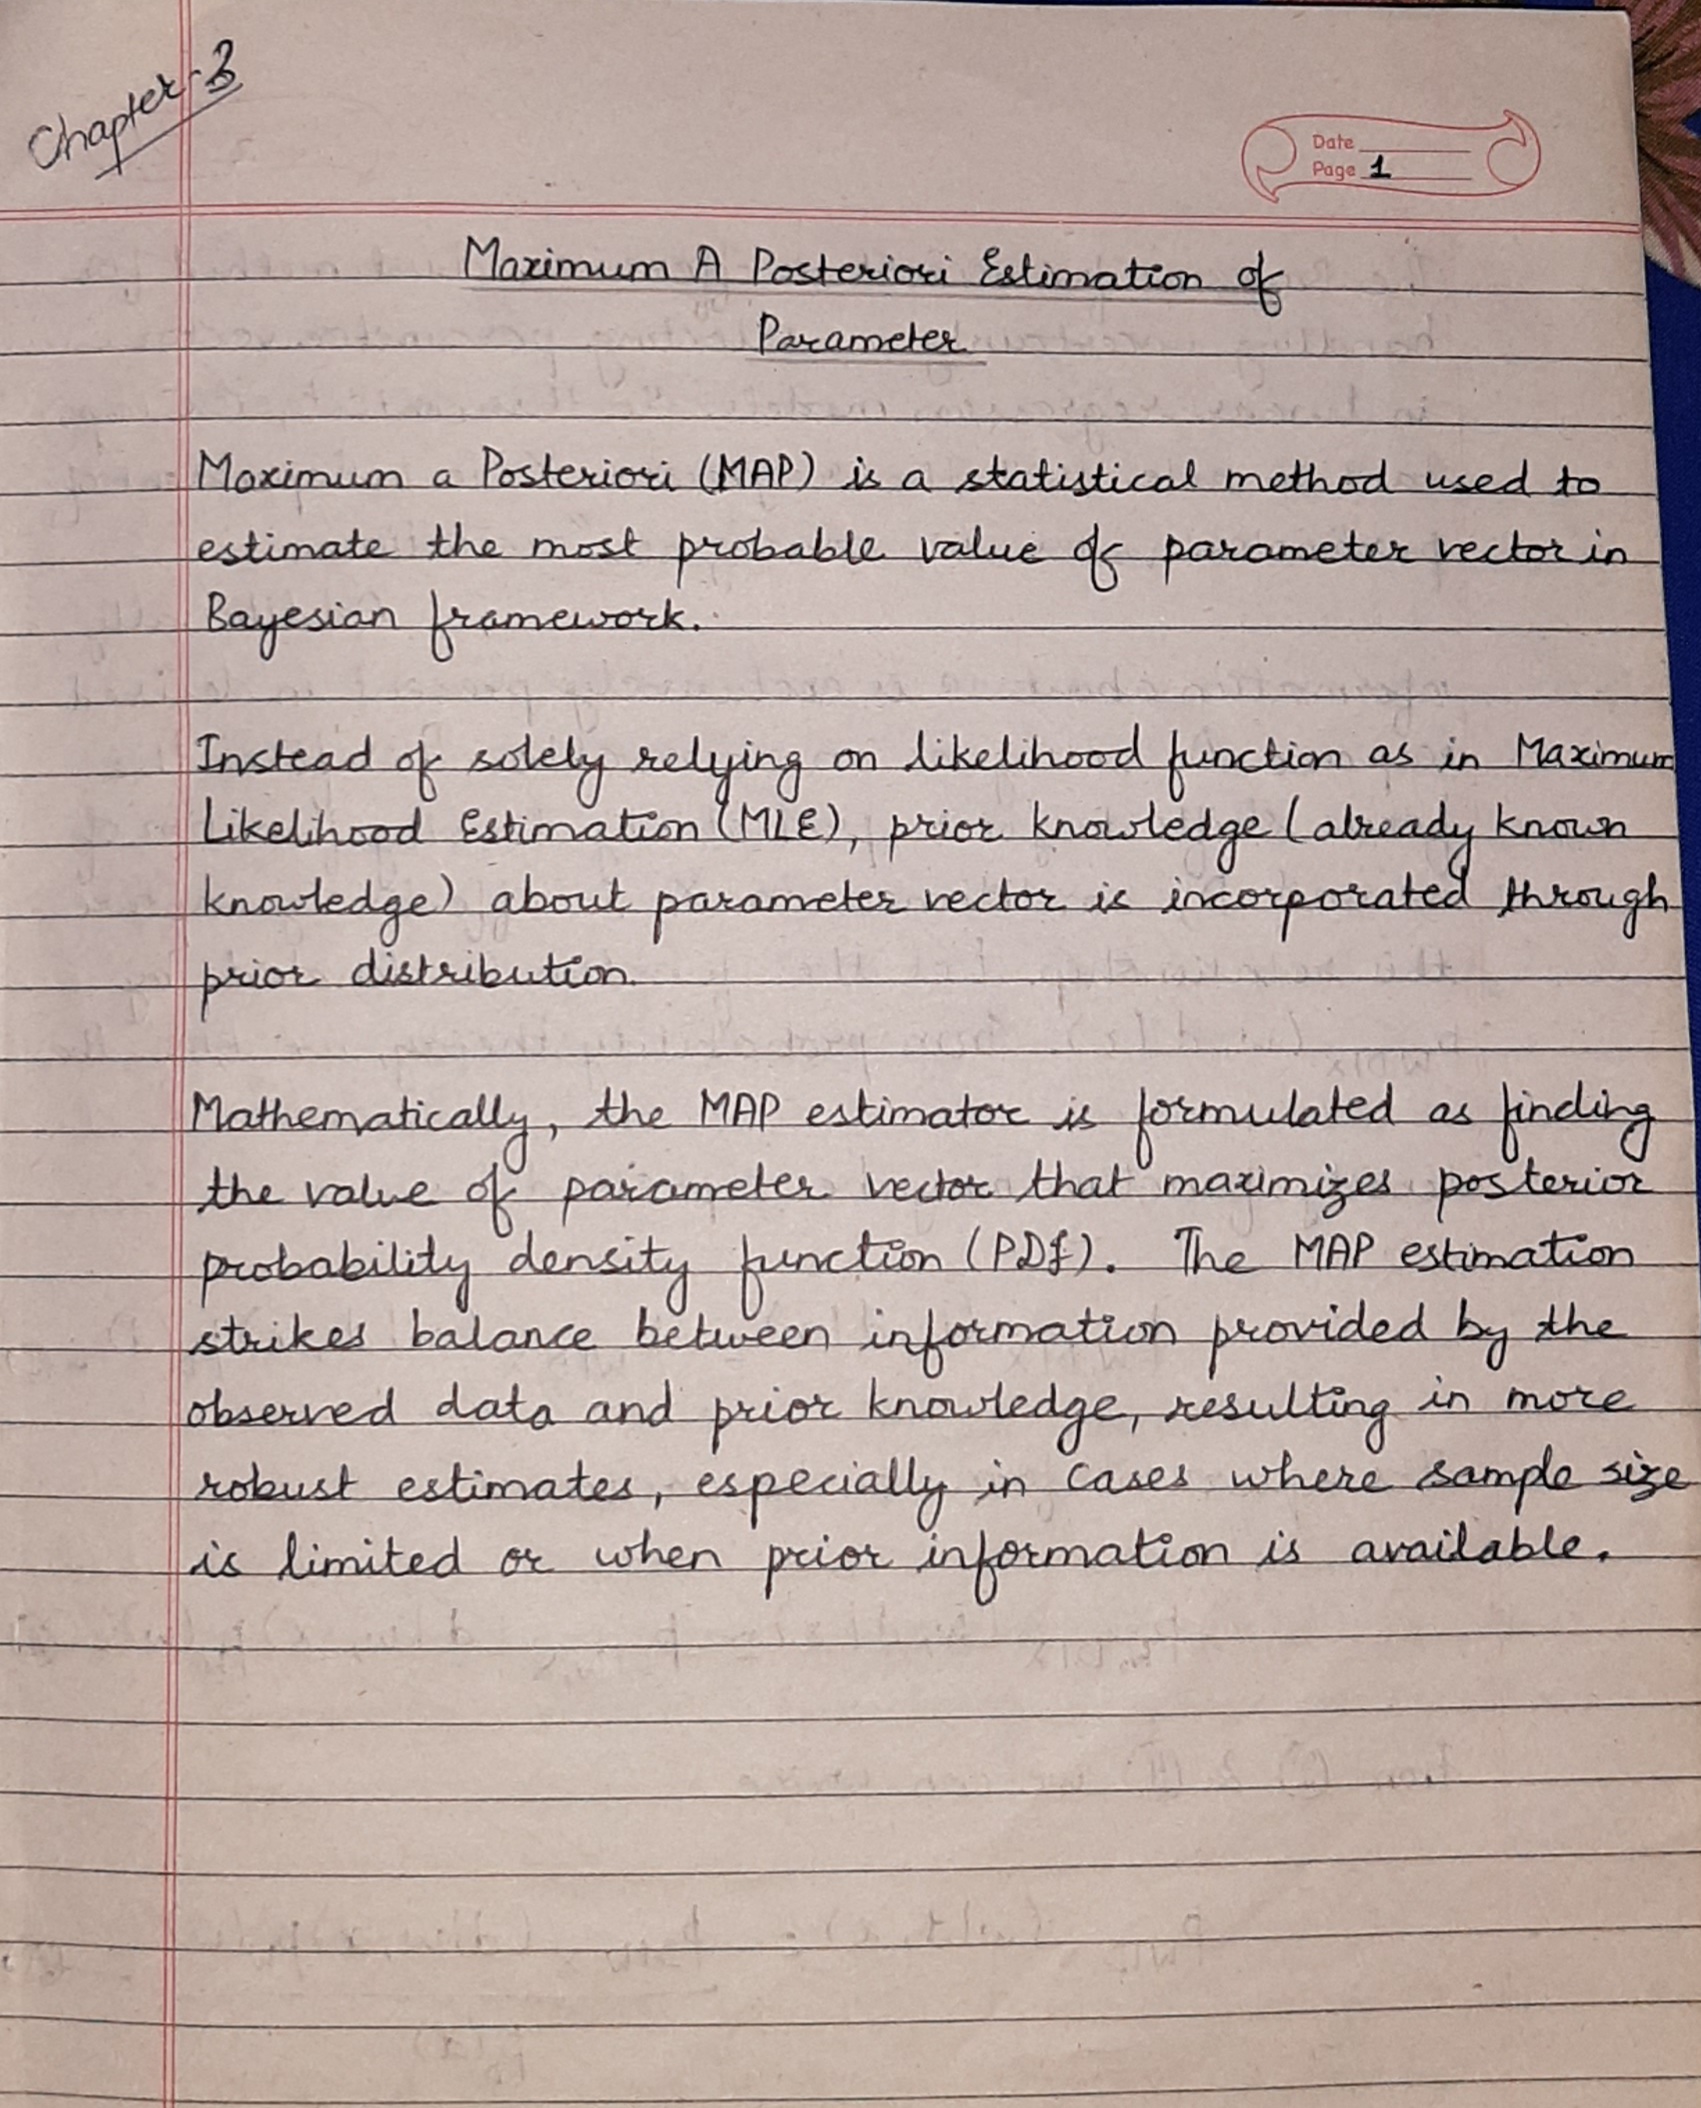 Chapter-3
Date
Page 1
Maximum A Posteriori Estimation of
Parameter
Maximum a Posteriori (MAP) is a statistical method used to
estimate the most probable value of parameter vector in
Bayesian framework.
Instead of solely relying on likelihood function as in Maximum
Likelihood Estimation (MLE), prior knowledge (already known
knowledge) about parameter vector is incorporated through
prior distribution.
Mathematically, the MAP estimator is formulated as finding
the value of parameter vector that maximizes posterior
probability density function (PDf). The MAP estimation
strikes balance between information provided by the
observed data and prior knowledge, resulting in more
robust estimates, especially in cases where sample size
is limited or when prior information is available.